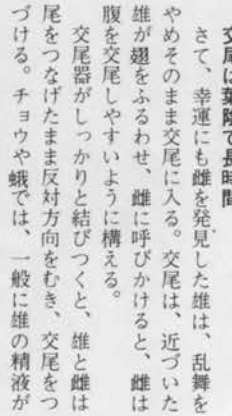 交尾は葉陰で長時間
さて、幸運にも雌を発見した雄は、乱舞を
やめそのまま交尾に入る。交尾は、近づいた
雄が翅をふるわせ、雌に呼びかけると、雌は
腹を交尾しやすいように構える。
交尾器がしっかりと結びつくと、雄と雌は
尾をつなげたまま反対方向をむき、交尾をつ
づける。チョウや蛾では、一般に雄の精液が